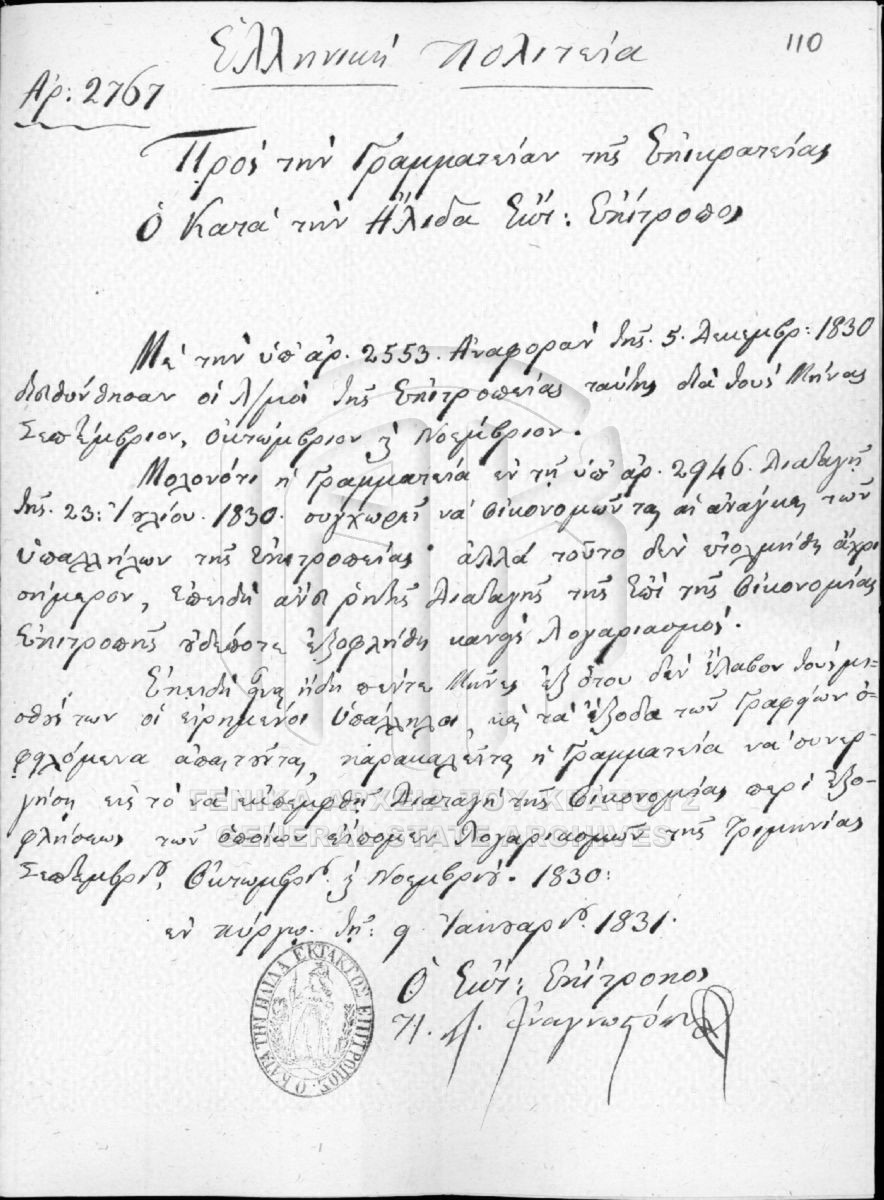 110
Ἑλληνική Πολιτεία
Ἀρ: 2767
Πρὸς τὴν Γραμματείαν τῆς Ἐπικρατείας
Ὁ Κατὰ τὴν Ἤλιδα Ἐκτ: Ἐπίτροπος
Μὲ τὴν ὑπ' ἀρ. 2553. Ἀναφορὰν τῆς 5. Δεκεμβρ: 1830
διευθύνθησαν οἱ Λ/μοὶ τῆς Ἐπιτροπείας ταύτης διὰ τοὺς Μῆνας
Σεπτέμβριον, Ὀκτώμβριον ϗ Νοέμβριον.
Μολονότι ἡ Γραμματεία ἐν τῇ ὑπ' ἀρ. 2946. Διαταγῇ
τῆς 23: Ἰουλίου. 1830. συγχωρεῖ νὰ οἰκονομῶνται αἱ ἀνάγκαι τῶν
ὑπαλλήλων τῆς Ἐπιτροπείας· ἀλλὰ τοῦτο δὲν ἐτολμήθη ἄχρι
σήμερον, ἐπειδὴ ἄνευ ῥητῆς Διαταγῆς τῆς ἐπὶ τῆς Οἰκονομίας
Ἐπιτροπῆς οὐδέποτε ἐξοφλήθη κανεὶς Λογαριασμός.
Ἐπειδὴ ὅμως ἤδη πέντε Μῆνες ἐξ ὅτου δὲν ἔλαβον τοὺς μι-
σθούς των οἱ εἰρημένοι Ὑπάλληλοι, καὶ τὰ ἔξοδα τῶν Γραφείων ὀ-
φειλόμενα ἀπαιτοῦνται, παρακαλεῖται ἡ Γραμματεία νὰ συνερ-
γήση εἰς τὸ νὰ ἐκπεμφθῇ Διαταγὴ τῆς Οἰκονομίας περὶ ἐξο-
φλήσεως τῶν ὁποίων εἴπομεν Λογαριασμῶν τῆς Τριμηνίας
Σεπτεμβρίου, Ὀκτωμβρίου ϗ Νοεμβρίου. 1830:
ἐν Πύργῳ τῇ: 9 Ἰανουαρίου. 1831.
Ὁ Ἐκτ: Ἐπίτροπος
Π. Δ. Ἀναγνωστόπουλος
Ο ΚΑΤΑ ΤΗΝ ΗΛΙΔΑ ΕΚΤΑΚΤΟΣ ΕΠΙΤΡΟΠΟΣ
ΓΕΝΙΚΑ ΑΡΧΕΙΑ ΤΟΥ ΚΡΑΤΟΥΣ
GENERAL STATE ARCHIVES